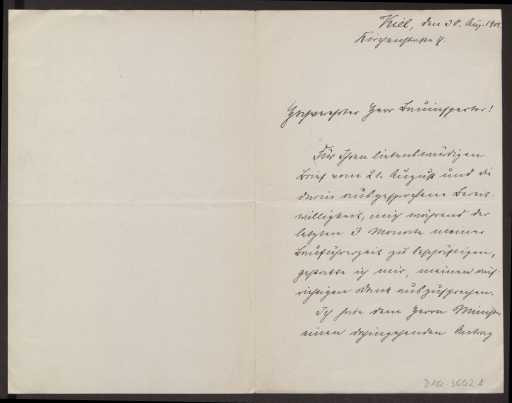 Kiel, den 30. Aug. 190
Hochverehrter Herr Bauinspector!
Für Ihren liebenswürdigen
Brief vom 21. August und die
darin ausgesprochene Bereit-
willigkeit, mich während der
letzten 3 Monate meiner
Bauführerzeit zu beschäftigen,
gestatte ich mir, meinen auf-
richtigen Dank auszusprechen.
Ich habe dem Herrn Minister
einen dahingehenden Antrag